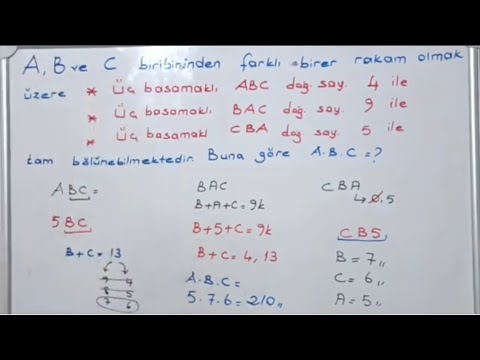 A, B ve C biribininden farklı birer rakam olmak
üzere * Üç basamaklı ABC doğ. say. 4 ile
* Üç basamaklı BAC doğ. say. 9 ile
* Üç basamaklı CBA doğ. say. 5 ile
tam bölünebilmektedir. Buna göre A.B.C=?
ABC=
5BC
B+C=13
9 4
8 5
7 6
BAC
B+A+C=9k
B+5+C=9k
B+C=4,13
A.B.C=
5.7.6=210,,
CBA
↳0,5
CB5
B=7,,
C=6,,
A=5,,